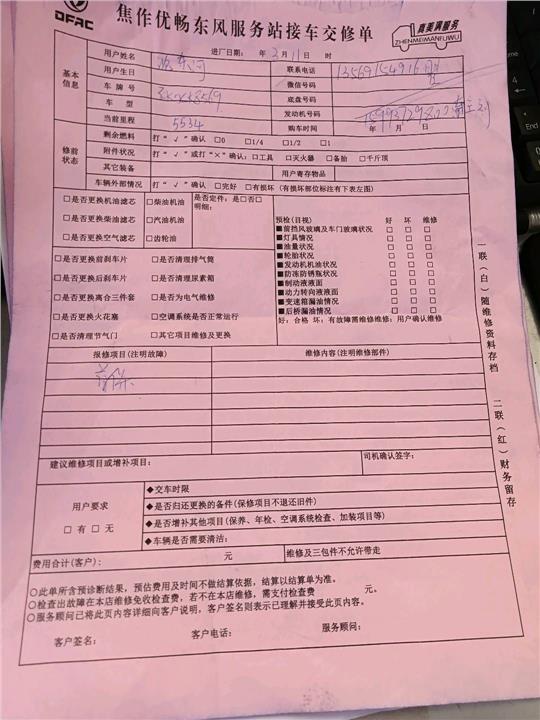 DFAC
焦作优畅东风服务站接车交修单
真美满服务
ZHENMEIMANFUWU
进厂日期: 年 3 月 11 日 时
基本信息
用户姓名
联系电话
用户生日
微信号码
车牌号
底盘号码
车型
发动机号码
当前里程 5534
购车时间 年 月 日
修前状态
剩余燃料 打“√”确认 □0 □1/4 □1/2 □1
附件状况 打“√”或打“×”确认:□工具 □灭火器 □备胎 □千斤顶
其它装备 用户寄存物品
车辆外部情况 打“√”确认 □完好 □有损坏(有损坏部位标注有下表左图)
□是否更换机油滤芯 □柴油机油 是否定件: 是□否□
明细:
□是否更换柴油滤芯 □汽油机油
□是否更换空气滤芯 □齿轮油
□是否更换前刹车片 □是否清理排气筒
□是否更换后刹车片 □是否清理尿素箱
□是否更换离合三件套 □是否为电气维修
□是否更换火花塞 □空调系统是否正常运行
□是否清理节气门 □其它项目维修及更换
预检(目视) 好 坏 维修
■前挡风玻璃及车门玻璃状况 □ □ □
■灯具情况 □ □ □
■油量状况 □ □ □
■轮胎状况 □ □ □
■发动机机油状况 □ □ □
■防冻防锈瓶状况 □ □ □
■制动液液面 □ □ □
■动力转向液液面 □ □ □
■变速箱漏油情况 □ □ □
■后桥漏油情况 □ □ □
好:合格 坏:有故障需维修维修:用户确认维修
报修项目(注明故障) 维修内容(注明维修部件)
首保
建议维修项目或增补项目: 司机确认签字:
用户要求
□有 □无
◆交车时限
◆是否归还更换的备件(保修项目不退还旧件)
◆是否增补其他项目(保养、年检、空调系统检查、加装项目等)
◆车辆是否需要清洁:
费用合计(客户): 元 维修及三包件不允许带走
○此单所含预诊断结果,预估费用及时间不做结算依据,结算以结算单为准。
○检查出故障在本店维修免收检查费,若不在本店维修,需支付检查费 元。
○服务顾问已将此页内容详细向客户说明,客户签名则表示已理解并接受此页内容。
客户签名: 客户电话: 服务顾问:
一联(白)随维修资料存档 二联(红)财务留存